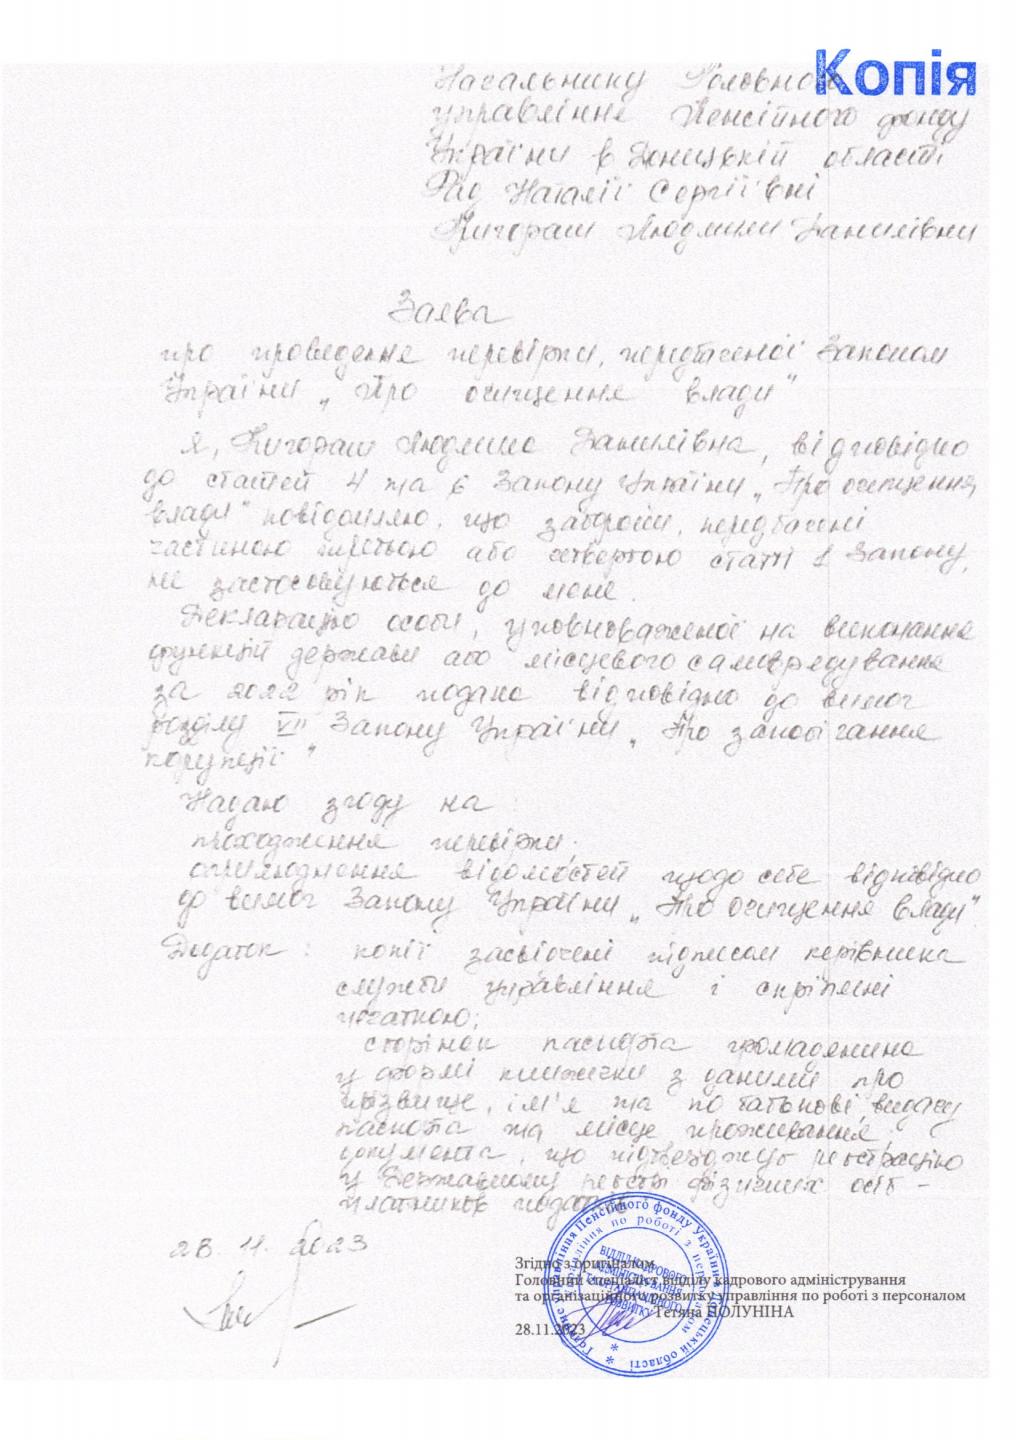 Копія
Начальнику Головного
управління Пенсійного фонду
України в Донецькій області
Рад Наталії Сергіївні
Людмили Данилівни
Заява
про проведення перевірки, передбаченої Законом
України „Про очищення влади"
Я, Людмила Данилівна, відповідно
до статей 4 та 6 Закону України „Про очищення
влади" повідомляю, що заборони, передбачені
частиною третьою або четвертою статті 1 Закону,
не застосовуються до мене.
Декларацію особи, уповноваженої на виконання
функцій держави або місцевого самоврядування
за 2022 рік подано відповідно до вимог
розділу VII Закону України „Про запобігання
корупції"
Надаю згоду на:
проходження перевірки;
оприлюднення відомостей щодо себе відповідно
до вимог Закону України „Про очищення влади".
Додаток: копії засвідчені підписом керівника
служби управління і скріплені
печаткою;
сторінок паспорта громадянина
у формі книжечки з даними про
прізвище, ім'я та по батькові, видачу
паспорта та місце проживання;
документа, що підтверджує реєстрацію
у Державному реєстрі фізичних осіб –
платників податків
28.11.2023
Згідно з оригіналом
Головний спеціаліст відділу кадрового адміністрування
та організаційного розвитку управління по роботі з персоналом
Тетяна ПОЛУНІНА
28.11.2023
Головне управління Пенсійного фонду України в Донецькій області
управління по роботі з персоналом
ВІДДІЛ КАДРОВОГО
АДМІНІСТРУВАННЯ
ТА ОРГАНІЗАЦІЙНОГО
РОЗВИТКУ